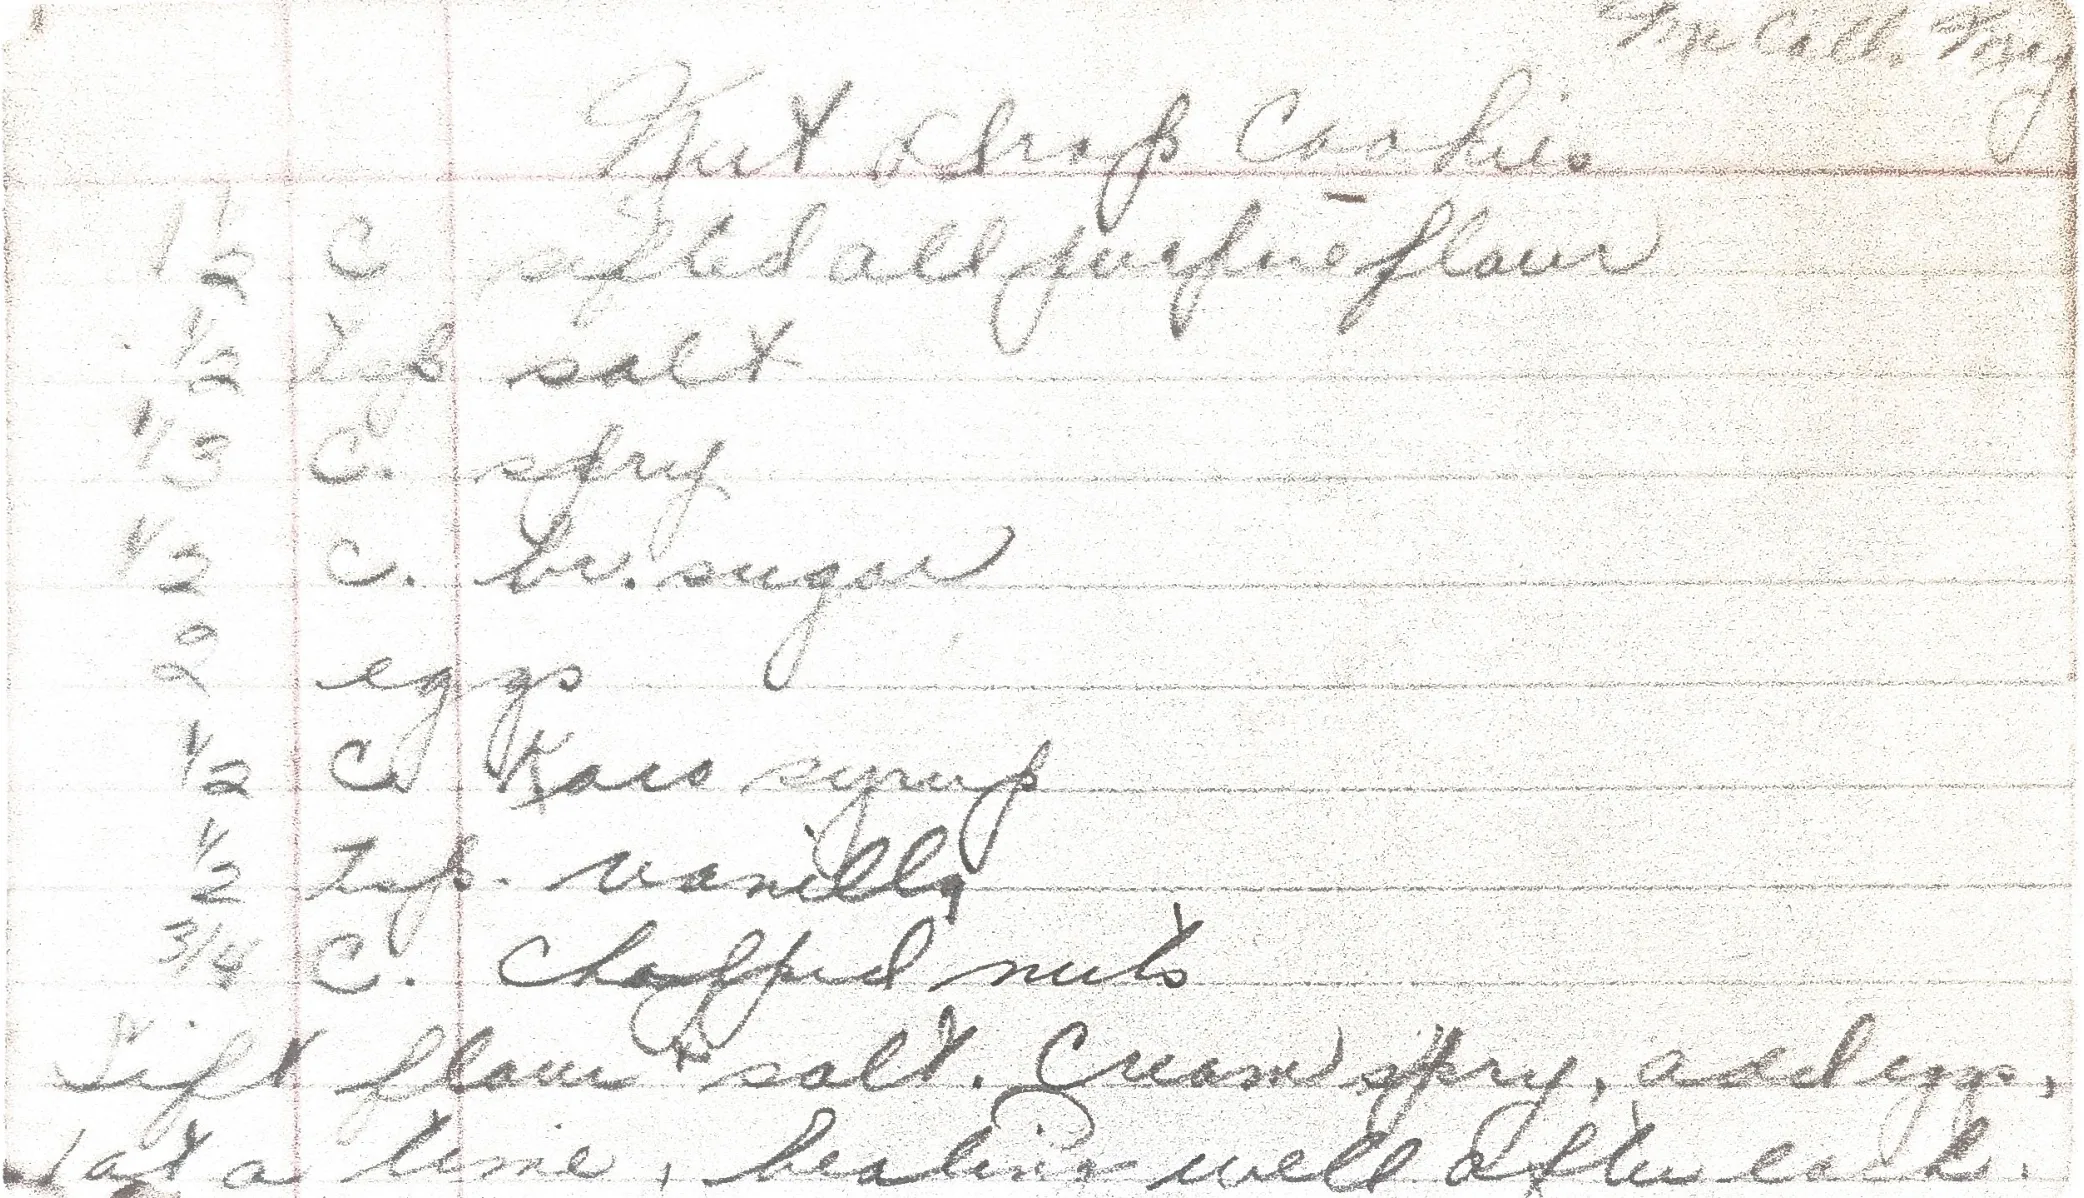 McCall. Mag
Nut drop Cookies
1 1/2 C sifted all purpose flour
1/2 tsp salt
1/3 C. spry
1/2 C. br. sugar
2 eggs
1/2 C. Karo syrup
1/2 tsp. vanilla
3/4 C. chopped nuts
Sift flour + salt. Cream spry, add eggs,
1 at a time, beating well after each.